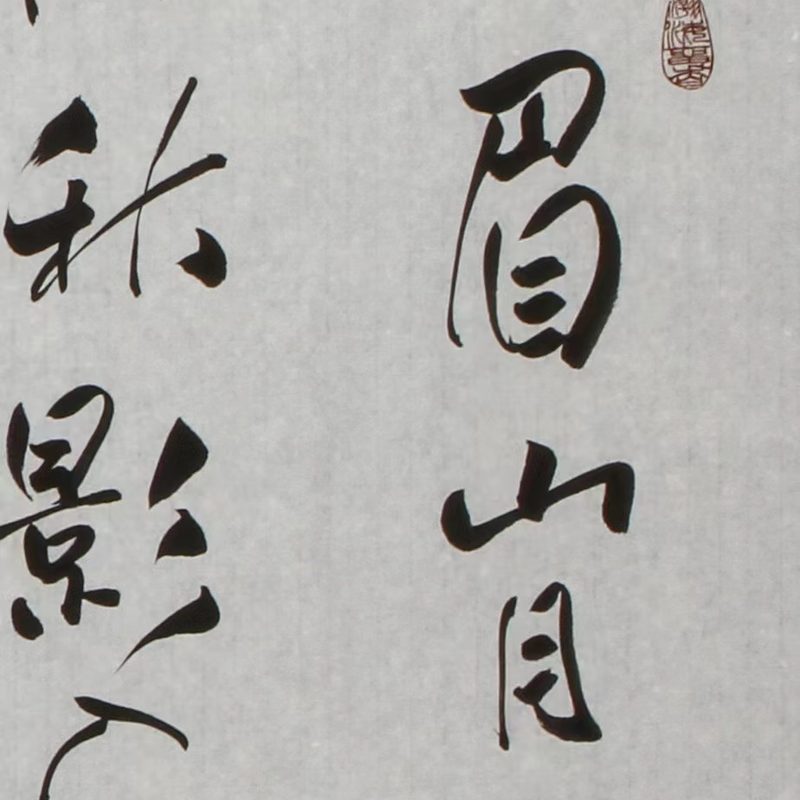 眉山月
秋影入